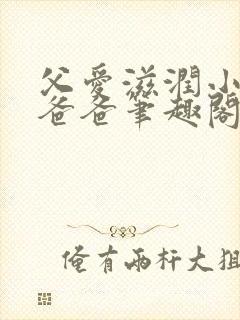 父爱滋润小
爸爸笔趣阁
俺有两杆大狙